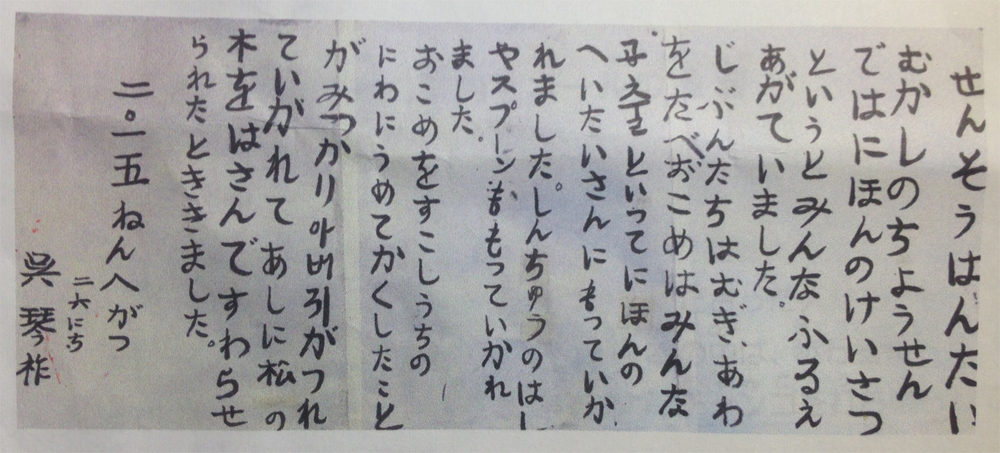 せんそうはんたい
むかしのちようせん
ではにほんのけいさつ
というとみんなふるえ
あがていました。
じぶんたちはむぎ、あわ
をたべおこめはみんな
といってにほんの
へいたいさんにもっていか
れました。しんちゅうのはし
やスプーンももっていかれ
ました。
おこめをすこしうちの
にわにうめてかくしたこと
がみつかり아버지がつれ
ていかれてあしに松の
木をはさんですわらせ
られたとききました。
二〇一五ねん八がつ
二六にち
呉琴祚